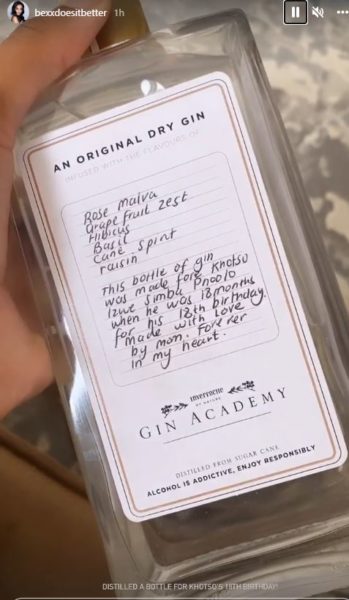 bexxdoesitbetter 1h
AN ORIGINAL DRY GIN
INFUSED WITH THE FLAVOURS OF
Rose Malva
Grape Fruit Zest
Hibicus
Basil
Cane Spirit
raisin
This bottle of gin
was made for Khotso
Simba
when he was 18 months
for his 18th birthday.
made with love
by mom. Forever
in my heart.
inverroche
BY NATURE
GIN ACADEMY
DISTILLED FROM SUGAR CANE
ALCOHOL IS ADDICTIVE, ENJOY RESPONSIBLY
DISTILLED A BOTTLE FOR KHOTSO'S 18TH BIRTHDAY!